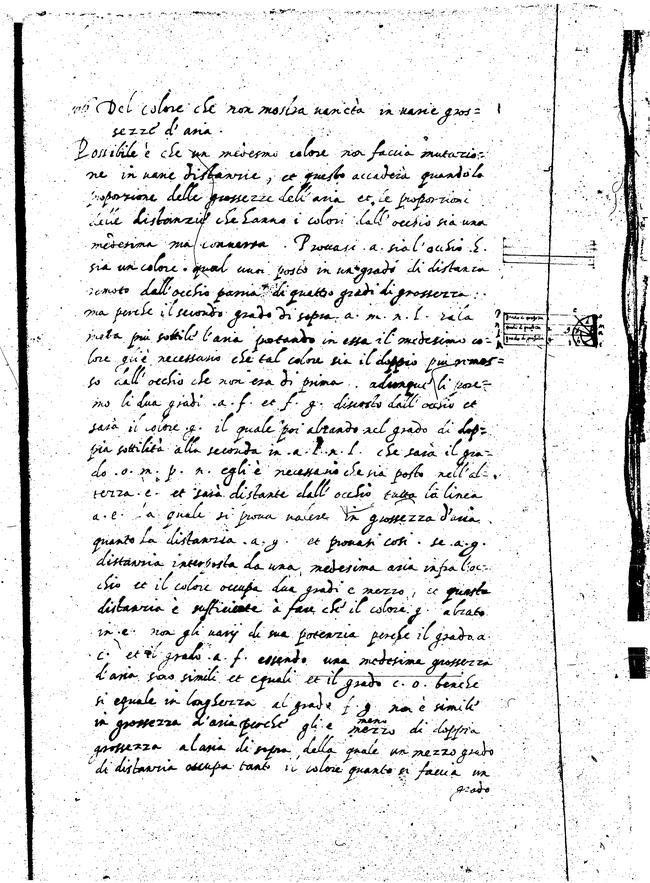 Del colore che non mostra varietà in varie gros=
sezze d'aria.
Possibile è che un medesimo colore non faccia mutatio=
ne in varie distanzie, et questo accaderà quando la
proporzione delle grossezze dell'aria et le proporzioni
delle distanzie che hanno i colori dall'occhio sia una
medesima ma conversa. Provasi .a. sia l'occhio .h.
sia un colore qual vuoi posto in un grado di distanza
remoto dall'occhio di quattro gradi di grossezza.
ma perche il secondo grado di sopra .a.m.n.l. ha la
metà più sottile l'aria portando in essa il medesimo co=
lore gli è necessario che tal colore sia il doppio più remos=
so dall'occhio che non era di prima. adunque li pore=
mo li dua gradi .a.f. et f.g. discosto dall'occhio et
sarà il colore .g. il quale poi alzando nel grado di dop=
pia sottilità alla seconda in .a. m.n.l. che sarà il gra=
do .o.m.p.n. egli è necessario che sia posto nell'al=
tezza .e. et sarà distante dall'occhio tutta la linea
a.e. la quale si prova valere in grossezza d'aria
quanto la distanzia .a.g. et provasi così. se .a.g.
distanzia interposta da una medesima aria infra l'oc=
chio et il colore occupa dua gradi e mezzo, et questa
distanzia è sufficiente à fare che il colore .g. alzato
in .e. non gli vary di sua potenzia perche il grado .a.
.c. et il grado .a.f. essendo una medesima grossezza
d'aria sono simili et equali et il grado c.o. benche
si equale in longhezza al grado f.g. non è simile
in grossezza d'aria perche gli è mezzo di doppia
grossezza al aria di sopra della quale un mezzo grado
di distanzia occupa tanto il colore quanto si faccia un
grado